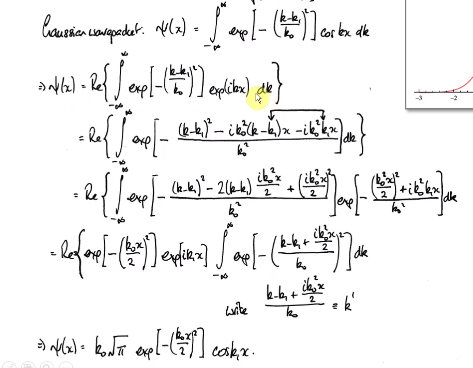 Gaussian wavepacket. ψ(x) = ∫_{-∞}^{∞} exp[-((k-k₁)/k₀)²] cos kx dk
⇒ ψ(x) = Re{ ∫_{-∞}^{∞} exp[-((k-k₁)/k₀)²] exp(ikx) dk }
= Re{ ∫_{-∞}^{∞} exp[- ((k-k₁)² - ik₀²(k-k₁)x - ik₀²k₁x)/k₀² ] dk }
= Re{ ∫_{-∞}^{∞} exp[- ((k-k₁)² - 2(k-k₁) ik₀²x/2 + (ik₀²x/2)²)/k₀² ] exp[- ((k₀²x/2)² + ik₀²k₁x)/k₀² ] dk
= Re{ exp[-(k₀x/2)²] exp[ik₁x] ∫_{-∞}^{∞} exp[-((k-k₁ + ik₀²x/2)/k₀)²] dk
write (k-k₁ + ik₀²x/2)/k₀ ≡ k'
⇒ ψ(x) = k₀√π exp[-(k₀x/2)²] cos k₁x.
-3 -2